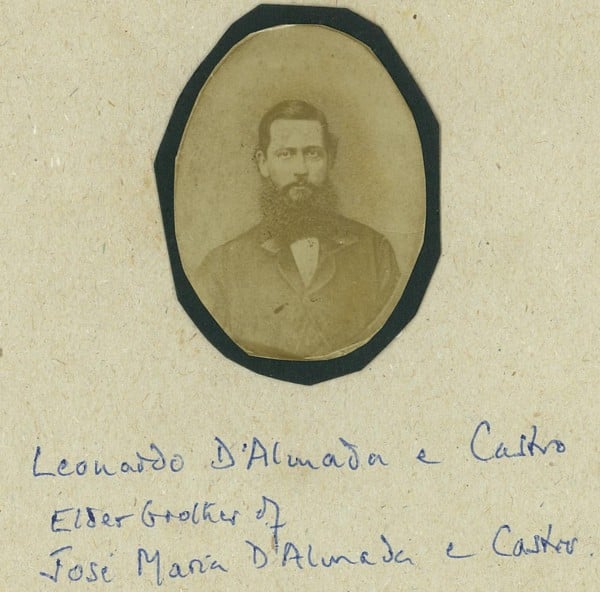 Leonardo D'Almada e Castro
Elder brother of
José Maria D'Almada e Castro.